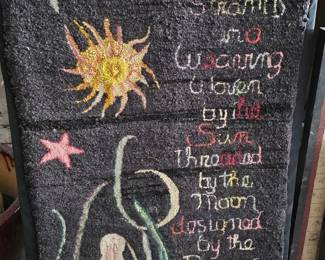 Strands
in a
Weaving
Woven
by the
Sun
Threaded
by the
Moon
designed
by the